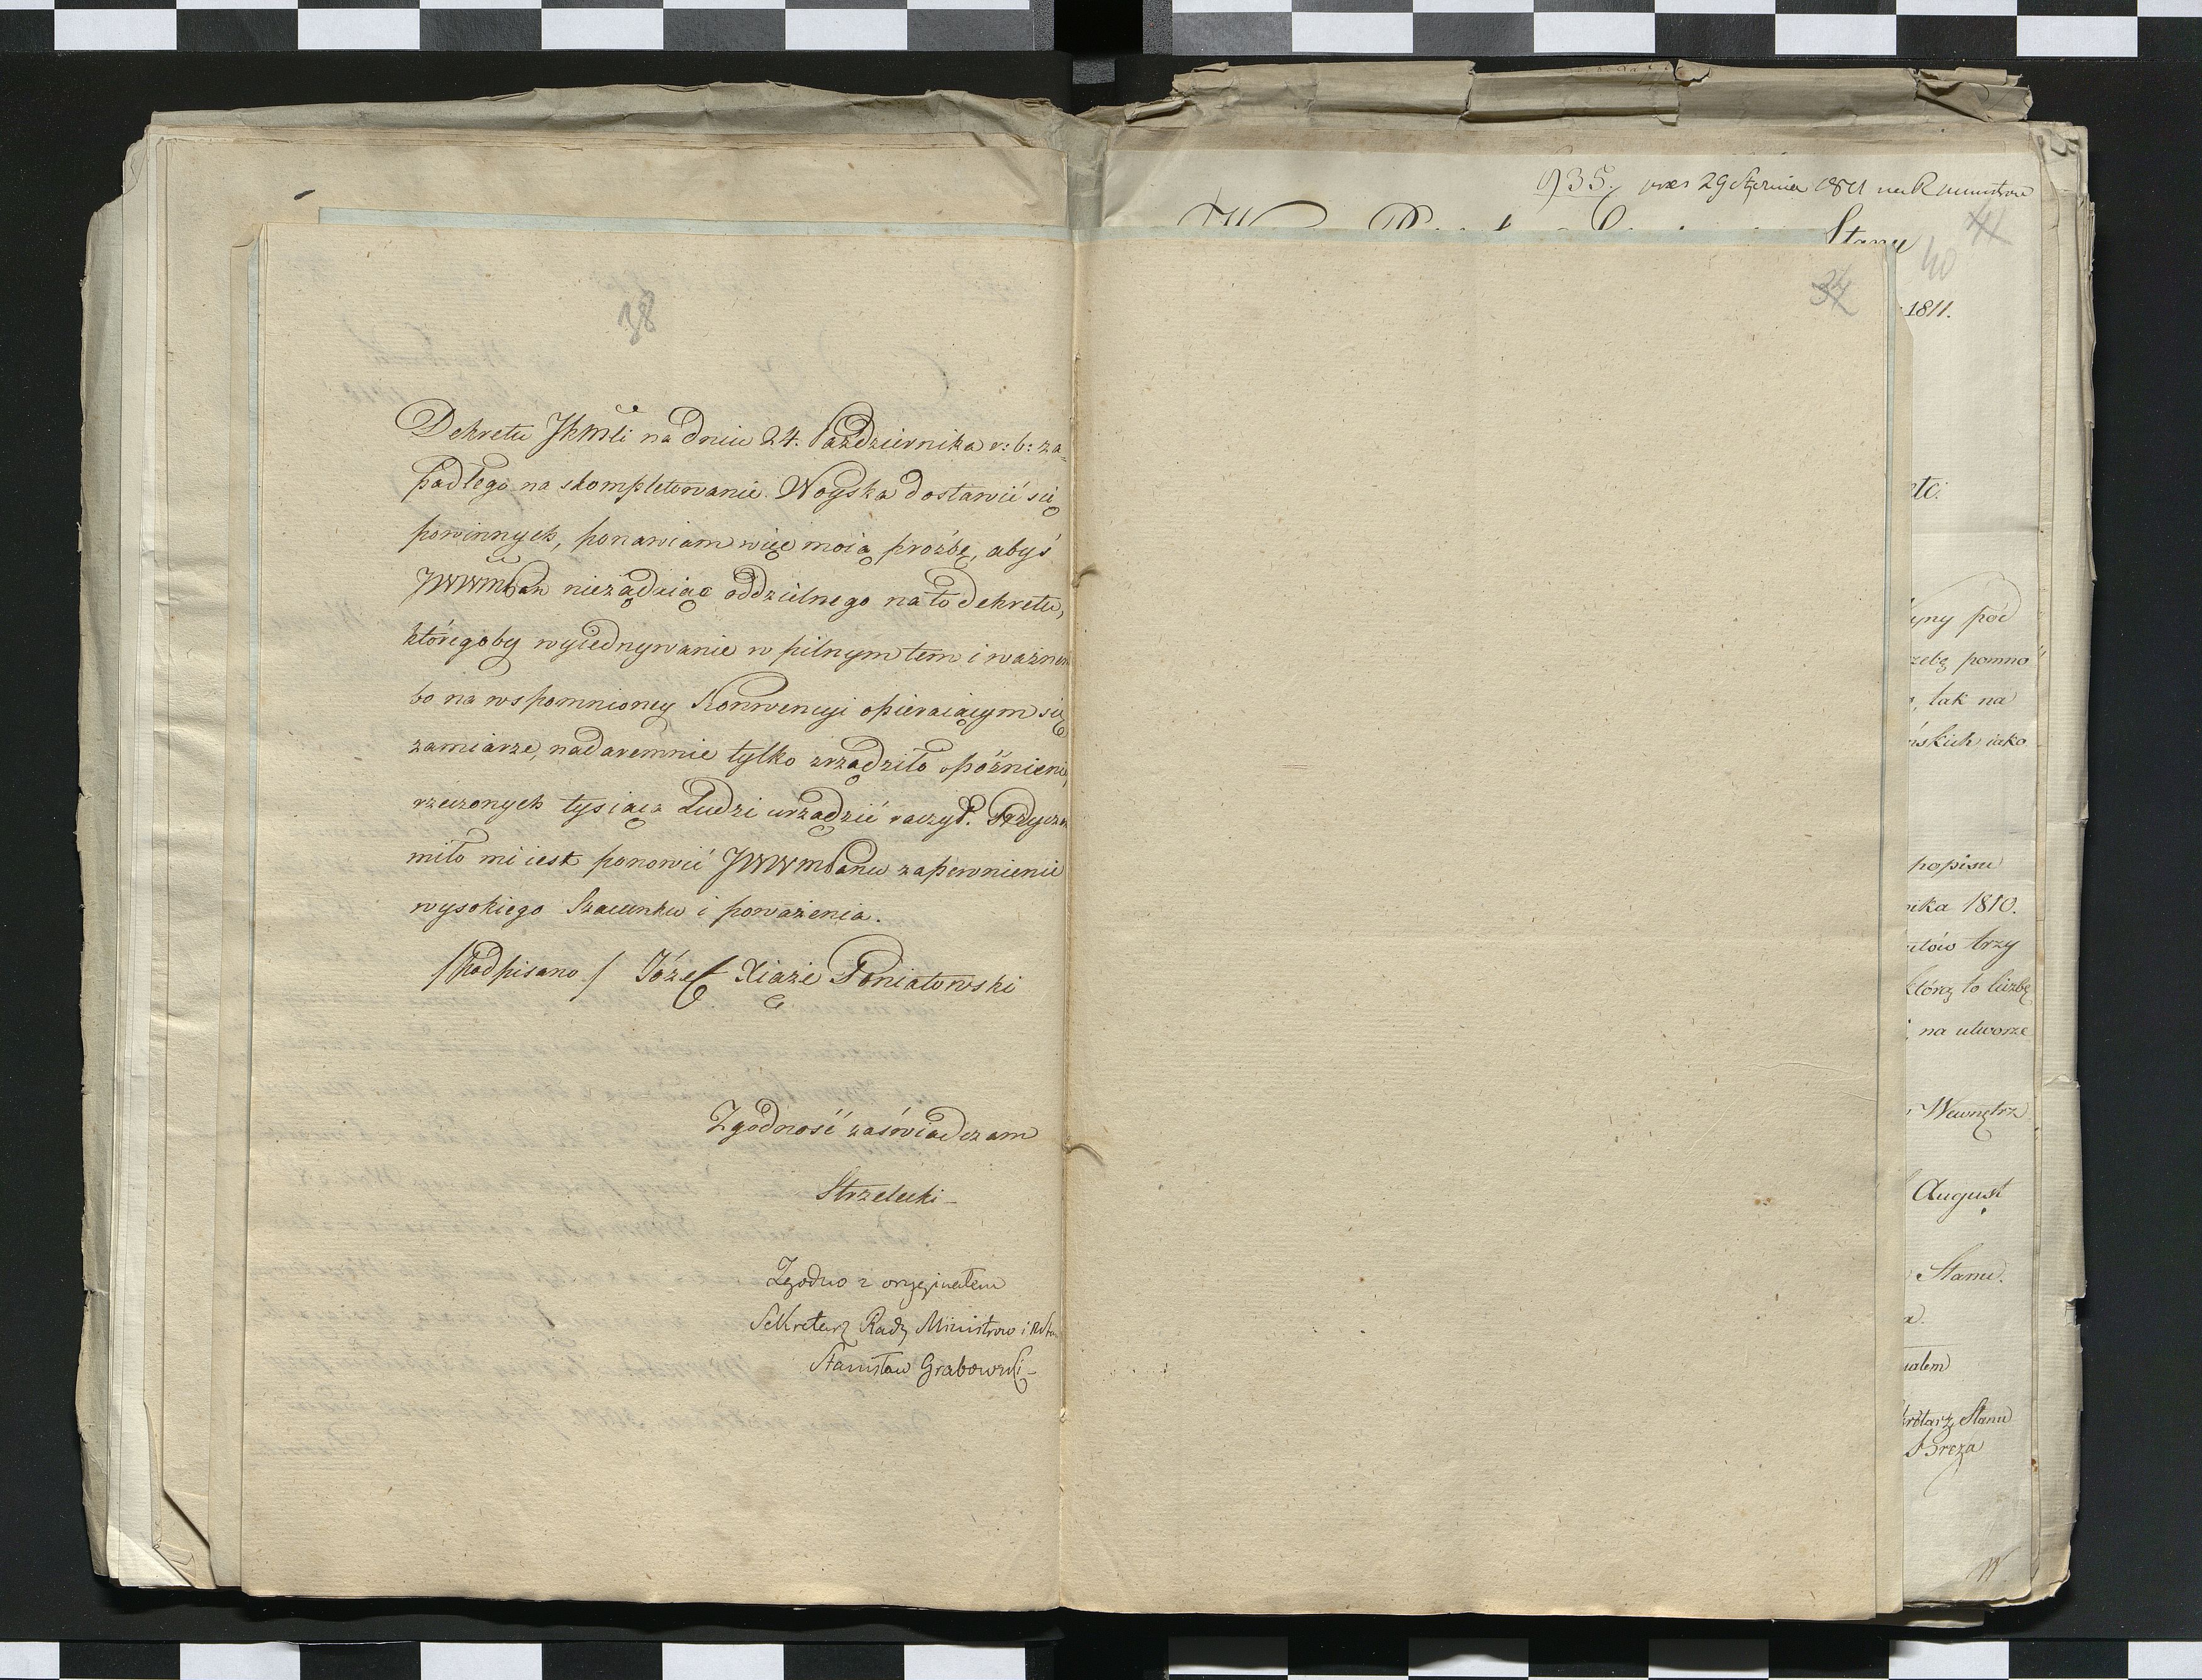 38
Dekretu JKMći na dniu 24. Października r: b: za-
padłego na skompletowanie Woyska dostawić się
powinnych, ponawiam więc moią prozbę, abyś
JWWmPan nieżądaiąc oddzielnego na to dekretu,
któregoby wyiednywanie w pilnym tem i ważnem
bo na wspomnioney Konwencyi opieraiącym się
zamiarze, nadaremnie tylko zrządziło opóźnienie,
rzeczonych tysiącz Ludzi urządzić raczył.
miło mi iest ponowić JWWmPanu zapewnienie
wysokiego Szacunku i poważenia.
/podpisano/ Józef Xiąże Poniatowski
Zgodność zaświadczam
Strzelecki
Zgodno z oryginałem
Sekretarz Rady Ministrow i
Stanisław Grabowski
935. 29 Stycznia 1811
Stanu
41
40
37
1811.
etc.
pod
pomno
, tak na
iako
popisu
nika 1810.
trzy
którą to liczbę
na utworze
Wewnętrz
August
Stanu.
Stanu
Breza